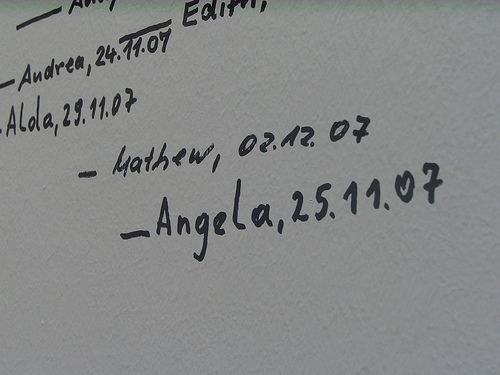 Edith,
- Andrea, 24.11.07
- Alda, 29.11.07
- Mathew, 02.12.07
- Angela, 25.11.07